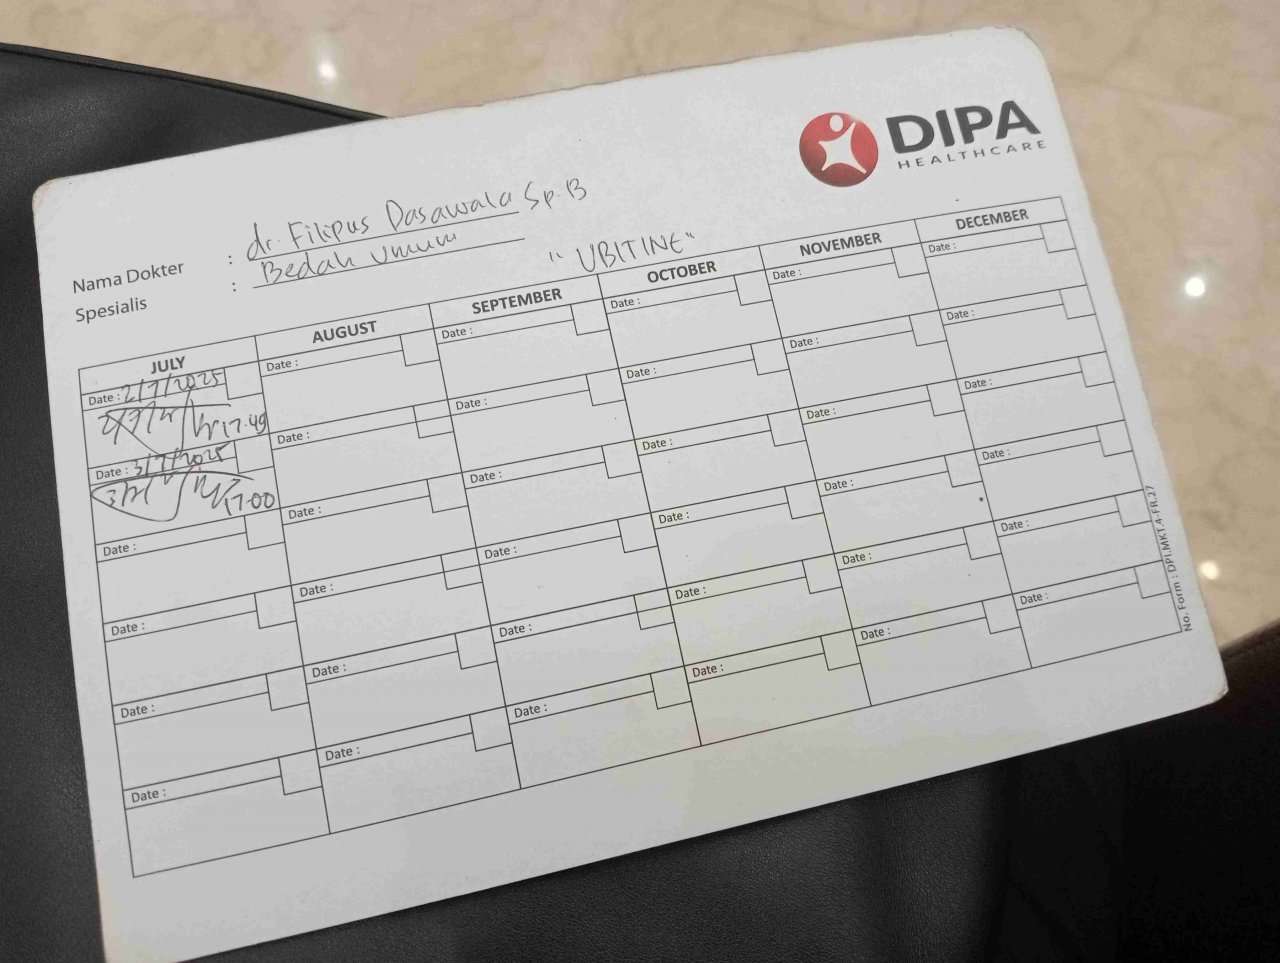 DIPA
HEALTHCARE
Nama Dokter : dr. Filipus Dasawala Sp.B
Spesialis : Bedah Umum
"UBITINE"
JULY AUGUST SEPTEMBER OCTOBER NOVEMBER DECEMBER
Date : 2/7/2025 Date : Date : Date : Date : Date :
17.49
Date : 3/7/2025 Date : Date : Date : Date : Date :
17.00
Date : Date : Date : Date : Date : Date :
Date : Date : Date : Date : Date : Date :
Date : Date : Date : Date : Date : Date :
Date : Date : Date : Date : Date : Date :
No. Form : DPI.MKT.4-FR.27